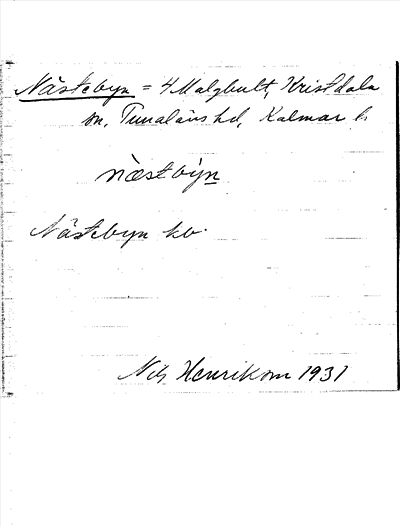 Nästebyn = 4 Malghult, Kristdala
sn, Tunaläns hd, Kalmar l.
næstbýn
Nästebyn kb.
Nils Henrikson 1931